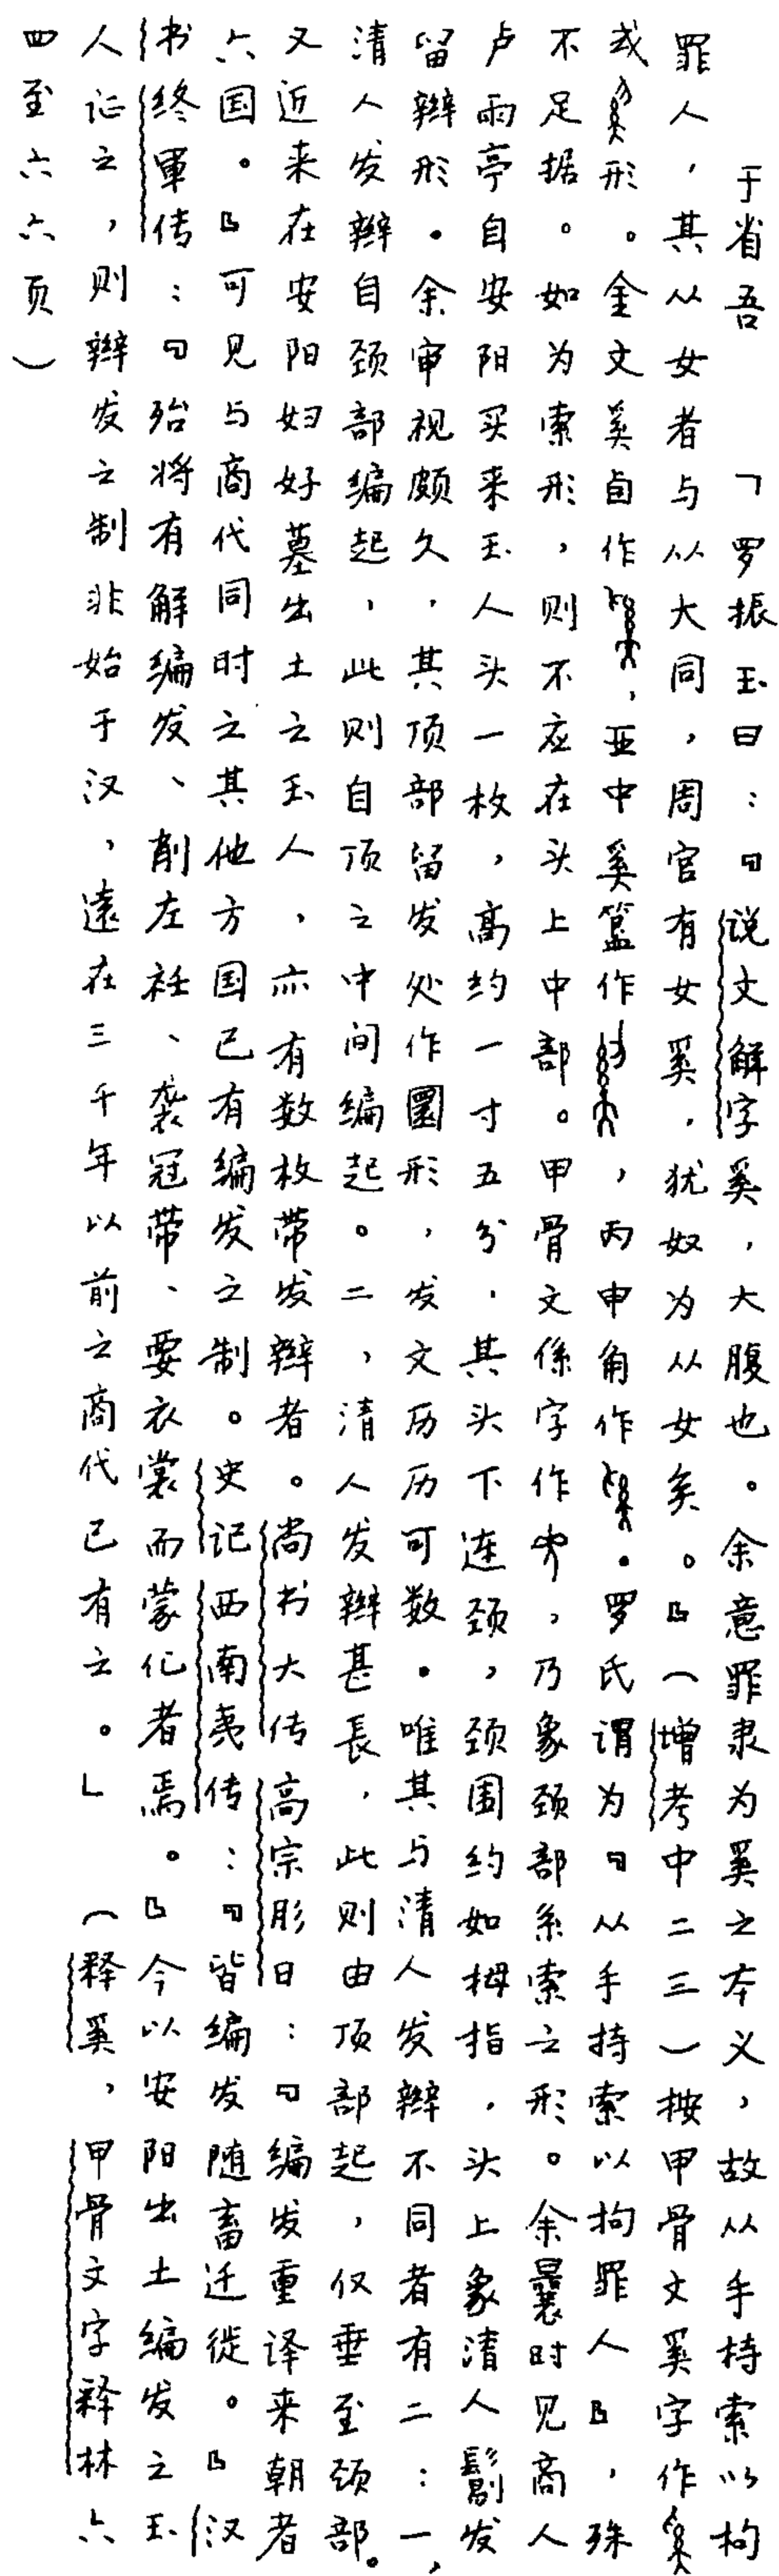 于省吾　「罗振玉曰：『说文解字奚，大腹也。余意罪隶为奚之本义，故从手持索以拘
罪人，其从女者与从大同，周官有女奚，犹奴为从女矣。』（增考中二三）按甲骨文奚字作
或形。金文奚卣作，亚中奚簋作，丙申角作。罗氏谓为『从手持索以拘罪人』，殊
不足据。如为索形，则不应在头上中部。甲骨文係字作，乃象颈部系索之形。余曩时见商人
卢雨亭自安阳买来玉人头一枚，高约一寸五分，其头下连颈，颈围约如拇指，头上象清人鬎发
留辫形。余审视颇久，其顶部留发处作圜形，发文历历可数。唯其与清人发辫不同者有二：一，
清人发辫自颈部编起，此则自顶之中间编起。二，清人发辫甚長，此则由顶部起，仅垂至颈部。
又近来在安阳妇好墓出土之玉人，亦有数枚带发辫者。尚书大传高宗肜日：『编发重译来朝者
六国。』可见与商代同时之其他方国已有编发之制。史记西南夷传：『皆编发随畜迁徙。』汉
书终軍传：『殆将有解编发、削左衽、袭冠带、要衣裳而蒙化者焉。』今以安阳出土编发之玉
人证之，则辫发之制非始于汉，遠在三千年以前之商代已有之。」（释奚，甲骨文字释林六
四至六六页）